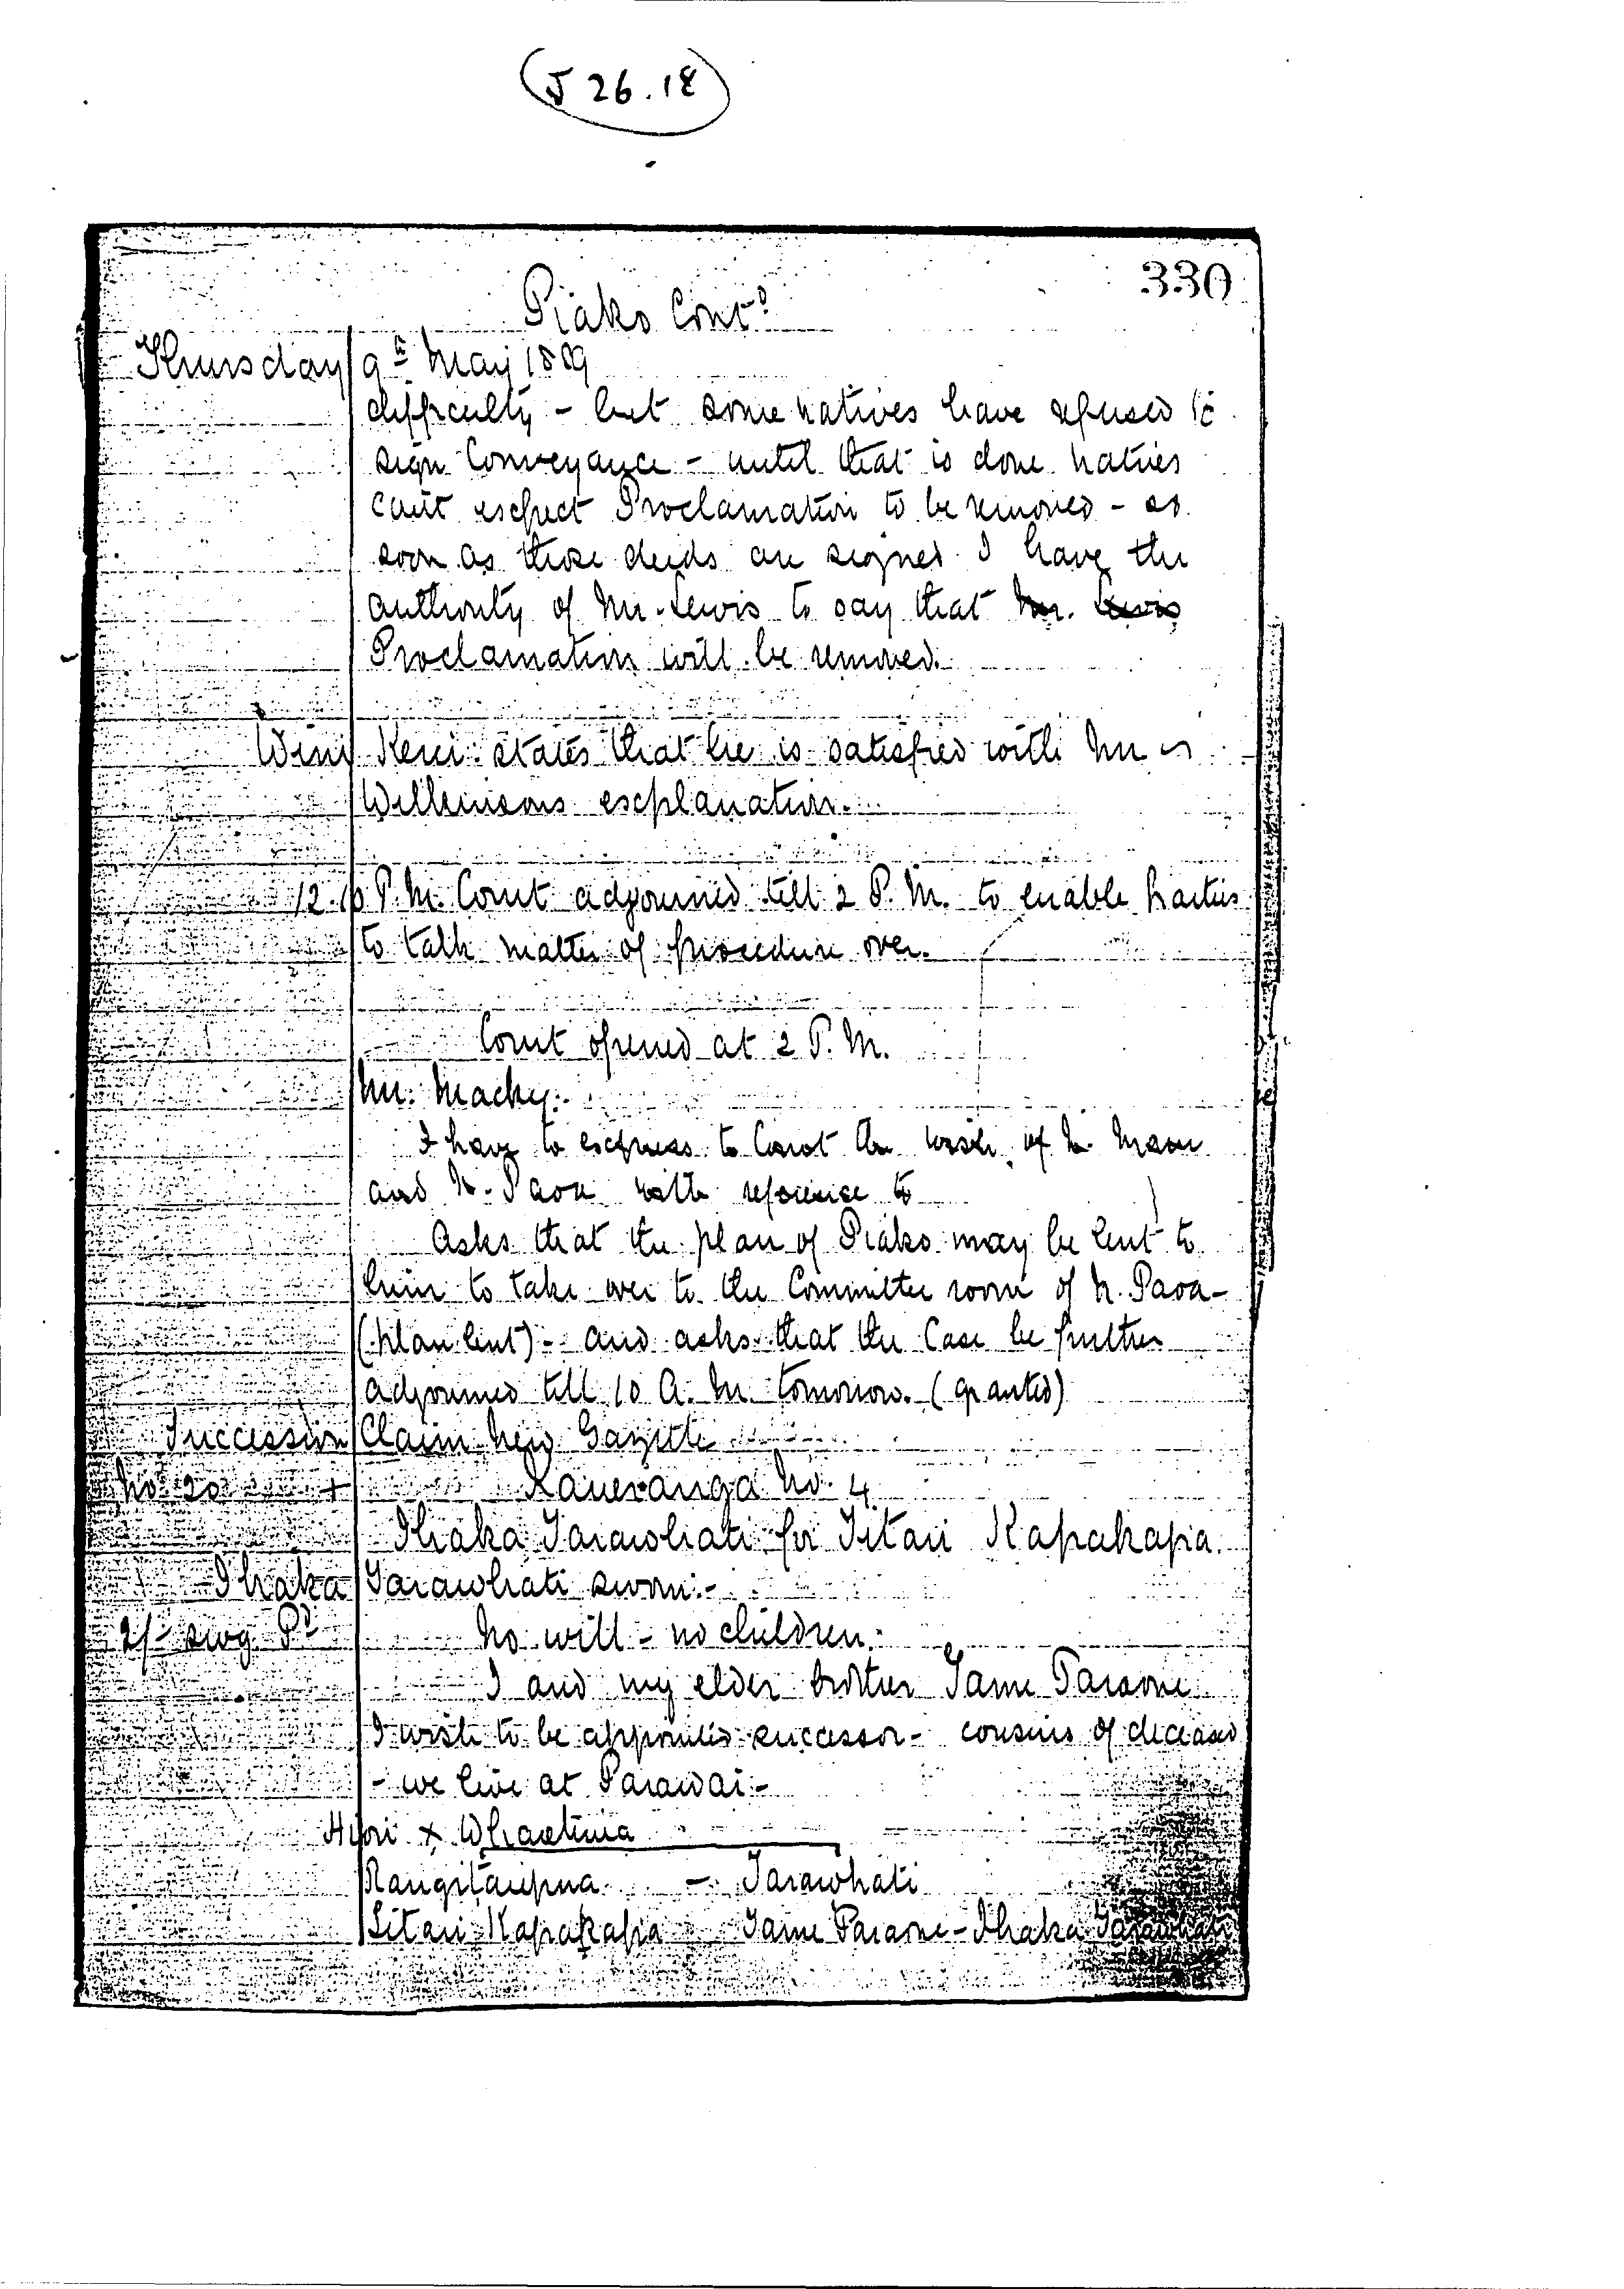 J 26.18
330
Piako Contd
Thursday 9th May 1889
difficulty - but some natives have refused to
sign Conveyance - until that is done natives
can't expect Proclamation to be removed - as
soon as those deeds are signed I have the
authority of Mr. Lewis to say that Mr. Lewis
Proclamation will be removed.
Wini Kerei states that he is satisfied with Mr
Wilkinsons explanation.
12.10 P.M. Court adjourned till 2 P.M. to enable parties
to talk matter of procedure over.
Court opened at 2 P.M.
Mr. Macky:-
I have to express to Court the wish of N. Maru
and N. Paoa with reference to
Asks that the plan of Piako may be lent to
him to take over to the Committee room of N. Paoa -
(Plan lent) - and asks that the Case be further
adjourned till 10 A.M. tomorrow. (granted)
Succession Claim New Gazette
No. 20 + Kaueranga No. 4
Ihaka Tarawhati for Titari Kapakapa.
Ihaka Tarawhati sworn:-
2/- swg Pd No will - no children.
I and my elder brother Tame Paraone
I wish to be appointed successor - cousins of deceased
- we live at Parawai -
x Whaetinia
Rangitaupua - Tarawhati
Titari Kapakapa Tame Paraone - Ihaka Tarawhati